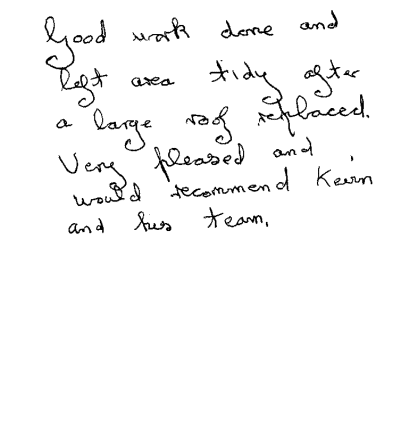 Good work done and
left area tidy after
a large roof replaced.
Very pleased and
would recommend Kevin
and his team.